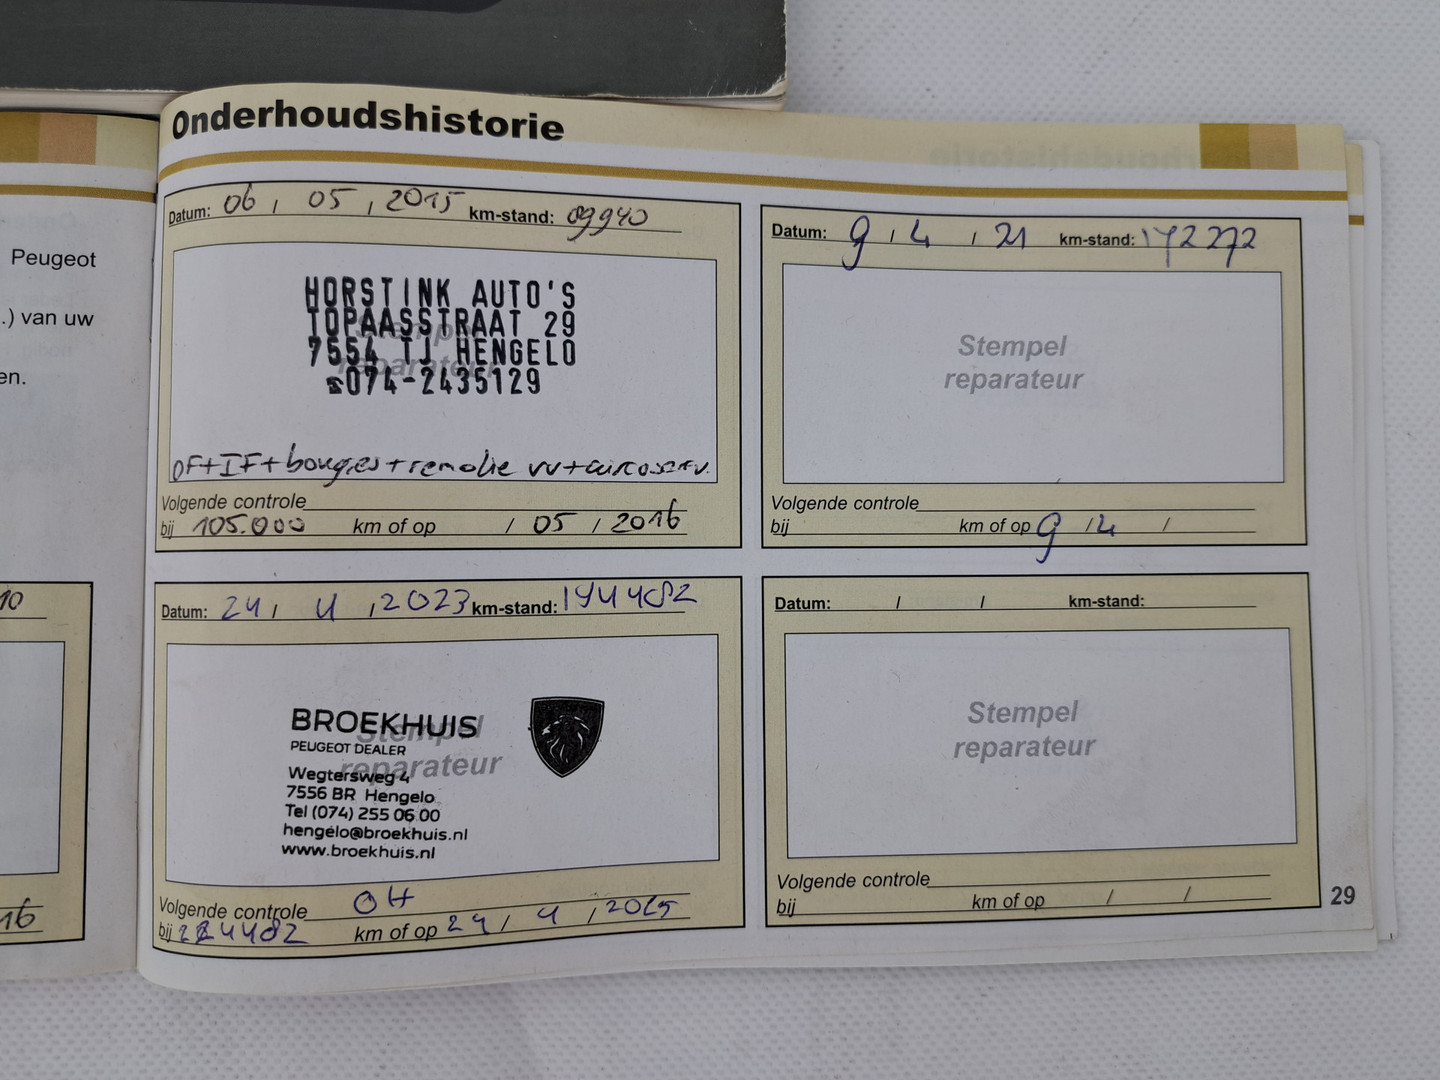 Onderhoudshistorie
Peugeot
.) van uw
en.
10
16
Datum: 06 / 05 / 2015 km-stand: 09940
HORSTINK AUTO'S
TOPAASSTRAAT 29
7554 TJ HENGELO
☎074-2435129
Stempel
reparateur
OF+IF+bougies+remolie vv+aircoserv.
Volgende controle
bij 105.000 km of op / 05 / 2016
Datum: 9 / 4 / 21 km-stand: 172272
Stempel
reparateur
Volgende controle
bij km of op 9 / 4 /
Datum: 24 / 4 / 2023 km-stand: 194482
BROEKHUIS
PEUGEOT DEALER
Stempel
reparateur
Wegtersweg 4
7556 BR Hengelo
Tel (074) 255 06 00
hengelo@broekhuis.nl
www.broekhuis.nl
Volgende controle OH
bij 224482 km of op 24 / 4 / 2025
Datum: / / km-stand:
Stempel
reparateur
Volgende controle
bij km of op / /
29